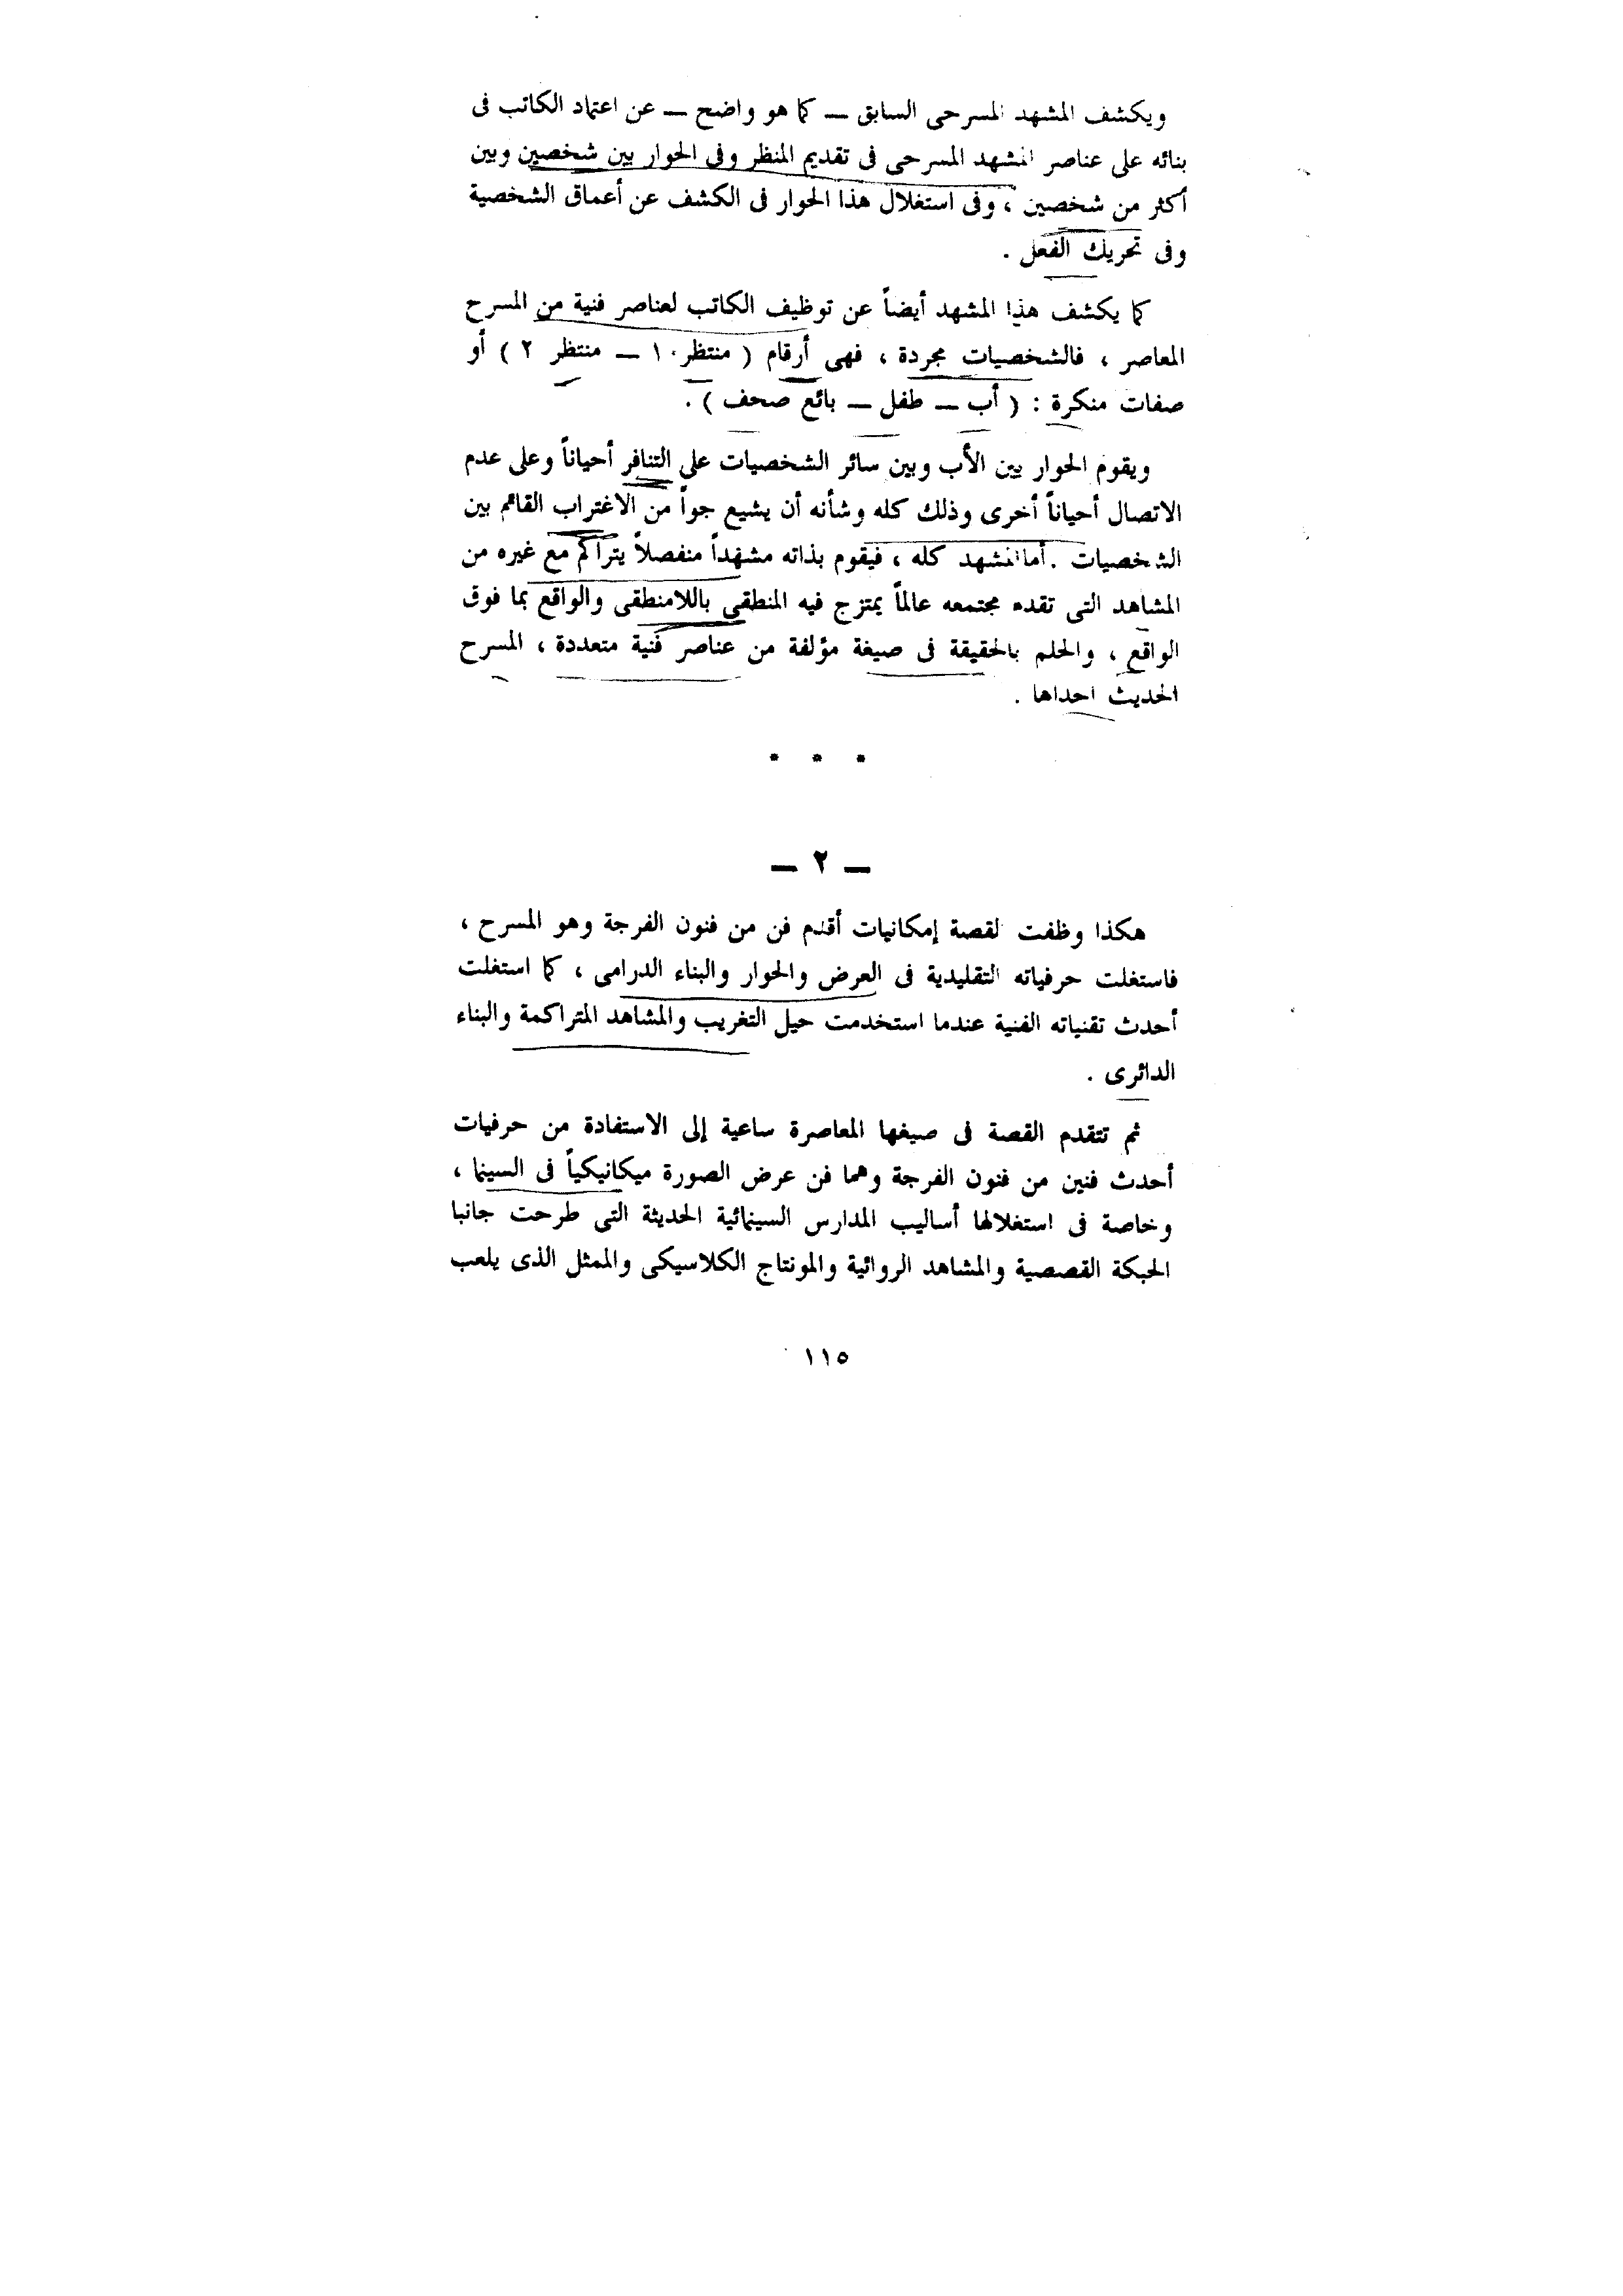 ويكشف المشهد المسرحى السابق — كما هو واضح — عن اعتماد الكاتب فى
بنائه على عناصر المشهد المسرحى فى تقديم المنظر وفى الحوار بين شخصين وبين
أكثر من شخصين ، وفى استغلال هذا الحوار فى الكشف عن أعماق الشخصية
وفى تحريك الفعل .
كما يكشف هذا المشهد أيضاً عن توظيف الكاتب لعناصر فنية من المسرح
المعاصر ، فالشخصيات مجردة ، فهى أرقام ( منتظر ١ — منتظر ٢ ) أو
صفات منكرة : ( أب — طفل — بائع صحف ) .
ويقوم الحوار بين الأب وبين سائر الشخصيات على التنافر أحياناً وعلى عدم
الاتصال أحياناً أخرى وذلك كله وشأنه أن يشيع جواً من الاغتراب القائم بين
الشخصيات . أما المشهد كله ، فيقوم بذاته مشهداً منفصلاً يتراكم مع غيره من
المشاهد التى تقدم مجتمعه عالماً يمتزج فيه المنطقى باللامنطقى والواقع بما فوق
الواقع ، والحلم بالحقيقة فى صيغة مؤلفة من عناصر فنية متعددة ، المسرح
الحديث احداها .
* * *
— ٢ —
هكذا وظفت القصة إمكانيات أقدم فن من فنون الفرجة وهو المسرح ،
فاستغلت حرفياته التقليدية فى العرض والحوار والبناء الدرامى ، كما استغلت
أحدث تقنياته الفنية عندما استخدمت حيل التغريب والمشاهد المتراكمة والبناء
الدائرى .
ثم تتقدم القصة فى صيغها المعاصرة ساعية إلى الاستفادة من حرفيات
أحدث فنين من فنون الفرجة وهما فن عرض الصورة ميكانيكياً فى السينما ،
وخاصة فى استغلالها أساليب المدارس السينمائية الحديثة التى طرحت جانبا
الحبكة القصصية والمشاهد الروائية والمونتاج الكلاسيكى والممثل الذى يلعب
١١٥